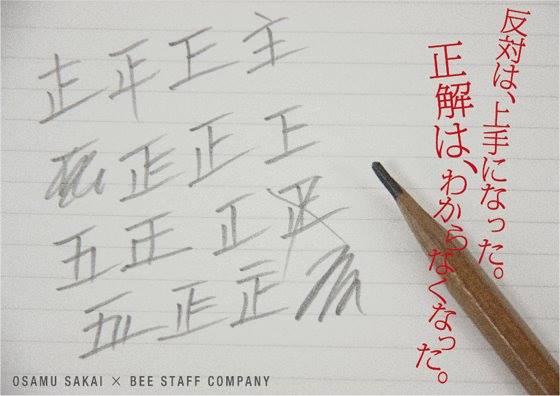 反対は、上手になった。
正解は、わからなくなった。
正 主
正 正
五 正 正
正
OSAMU SAKAI × BEE STAFF COMPANY